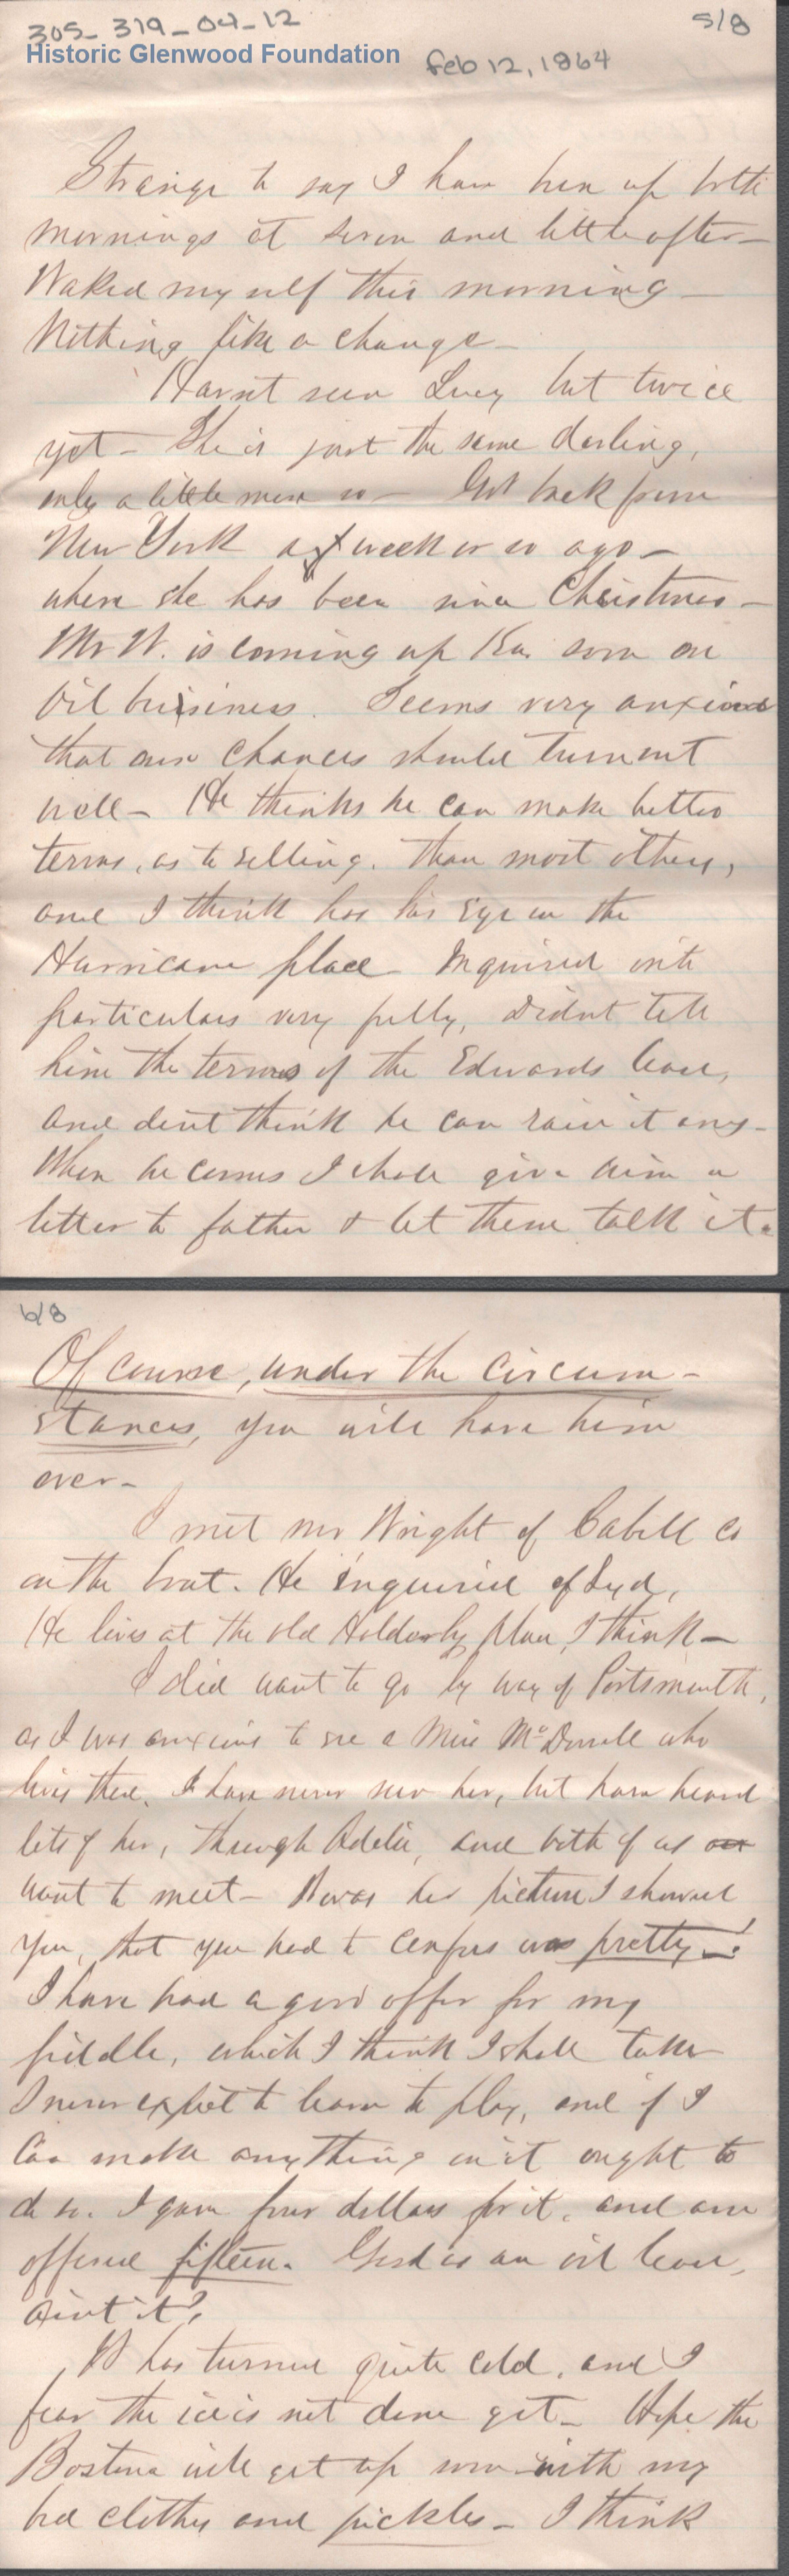 305-319-04-12
5/8
Historic Glenwood Foundation
Feb 12, 1864
Strange to say I have been up both
mornings at seven and little after —
Waked myself this morning —
Nothing like a change —
Havn't seen Lucy but twice
yet — She is just the same darling,
only a little more so — Got back from
New York a week or so ago —
where she has been since Christmas —
Mr W. is coming up Ka. soon on
Oil business. Seems very anxious
that our chances should turn out
well — He thinks he can make better
terms, as to selling, than most others,
and I think has his eye on the
Hurricane place — Inquired into
particulars very fully, didnt tell
him the terms of the Edwards lease,
and dont think he can raise it any —
When he comes I shall give him a
letter to father & let them talk it.
6/8
Of course, under the circum-
stances, you will have him
over —
I met Mr Wright of Cabell Co
on the boat. He inquired of Lyd,
He lives at the old Holderby place, I think —
I did want to go by way of Portsmouth,
as I was anxious to see a Miss McDowell who
lives there. I have never seen her, but have heard
lots of her, through Adelia, and both of us
want to meet — It was her picture I showed
you, that you had to confess was pretty —!
I have had a good offer for my
fiddle, which I think I shall take
I never expect to learn to play, and if I
can make anything on it ought to
do so. I gave four dollars for it, and am
offered fifteen. Good as an oil lease,
aint it?
It has turned quite cold, and I
fear the ice is not done yet — Hope the
Bostona will get up soon with my
bed clothes and pickles — I think